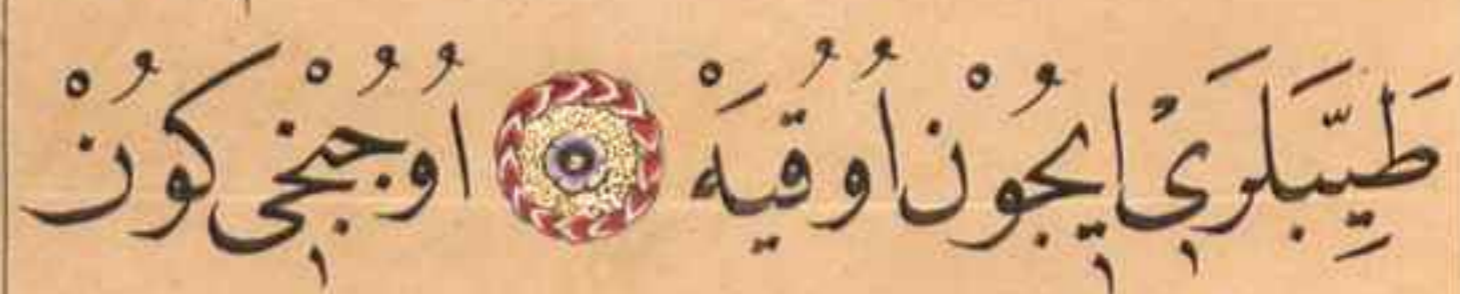 طَيِّبَلَرِىْ اِيجُوْن اُوقُيَهْ ۞ اُوجُنْجِى كُونْ